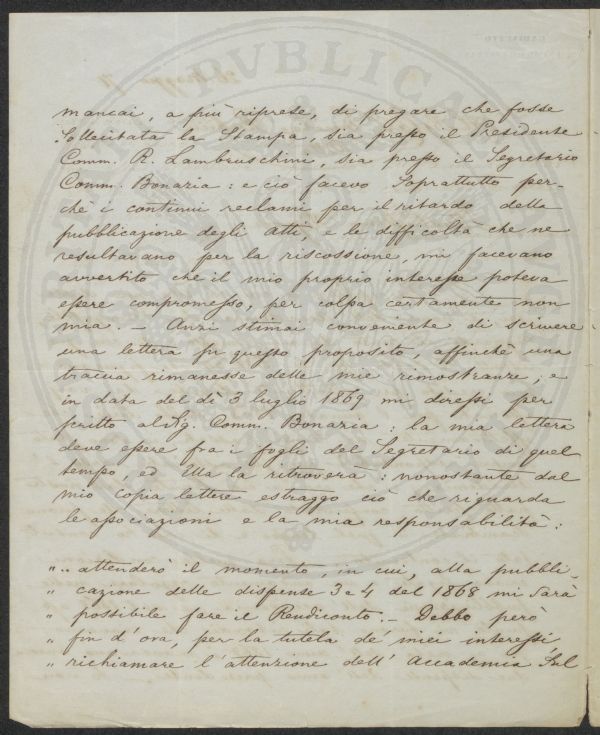 mancai, a più riprese, di pregare che fosse
sollecitata la Stampa, sia presso il Presidente
Comm. R. Lambruschini, sia presso il Segretario
Comm. Bonazia: e ciò facevo soprattutto per-
chè i continui reclami per il ritardo della
pubblicazione degli Atti, e le difficoltà che ne
resultavano per la riscossione, mi facevano
avvertito che il mio proprio interesse poteva
essere compromesso, per colpa certamente non
mia. — Anzi stimai conveniente di scrivere
una lettera su questo proposito, affinchè una
traccia rimanesse delle mie rimostranze, e
in data del dì 3 luglio 1869 mi diressi per
scritto al Sig. Comm. Bonazia: la mia lettera
deve essere fra i fogli del Segretario di quel
tempo, ed Ella la ritroverà: nonostante dal
mio copia lettere estraggo ciò che riguarda
le associazioni e la mia responsabilità:
„.. attenderò il momento, in cui, alla pubbli-
„ cazione delle dispense 3 e 4 del 1868 mi sarà
„ possibile fare il Rendiconto. — Debbo però
„ fin d'ora, per la tutela de' miei interessi,
„ richiamare l'attenzione dell'Accademia sul